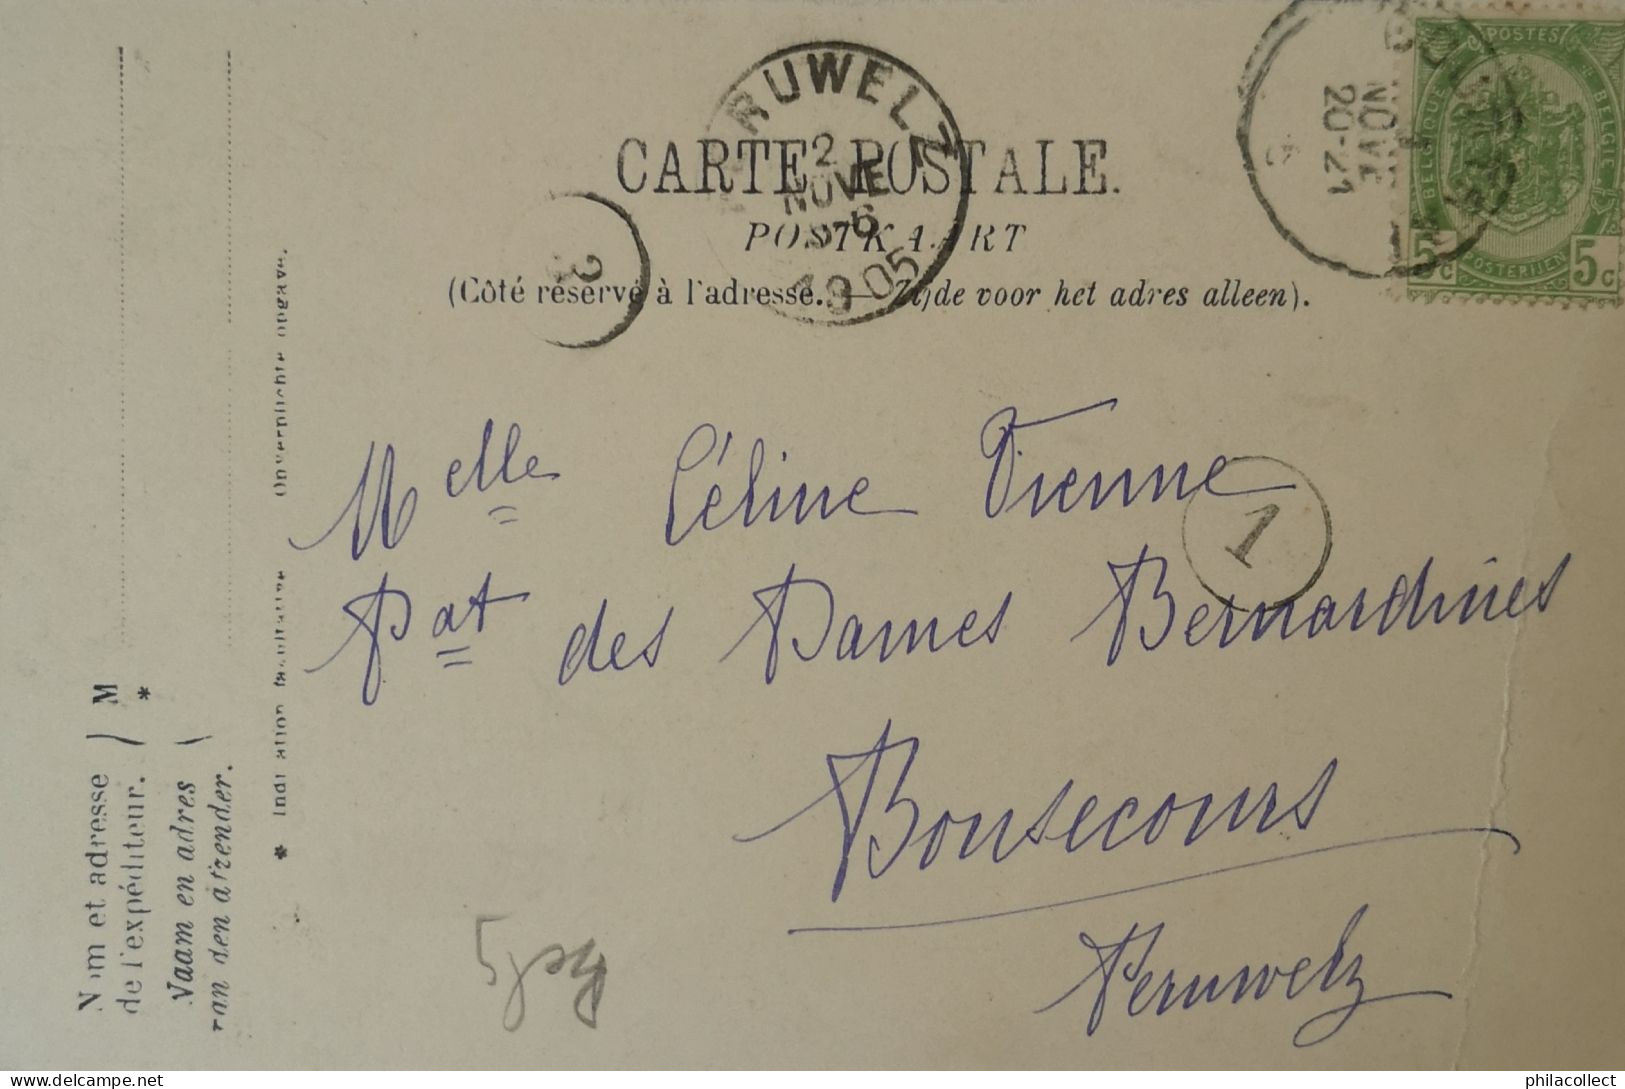 CARTE POSTALE.
POSTKAART
(Côté réservé à l'adresse. — Zijde voor het adres alleen).
RUWELZ
2
NOVE
6
1905
3
1
NOVE
20-21
POSTES
BELGIQUE
BELGIE
POSTERIJEN
5c 5c
Melle Céline Vienne
1
Pat des Dames Bernardines
Bonsecours
Peruwelz
Nom et adresse
de l'expéditeur.
M
*
Naam en adres
van den afzender.
* Indication facultative Onverplichte opgave.
philacollect